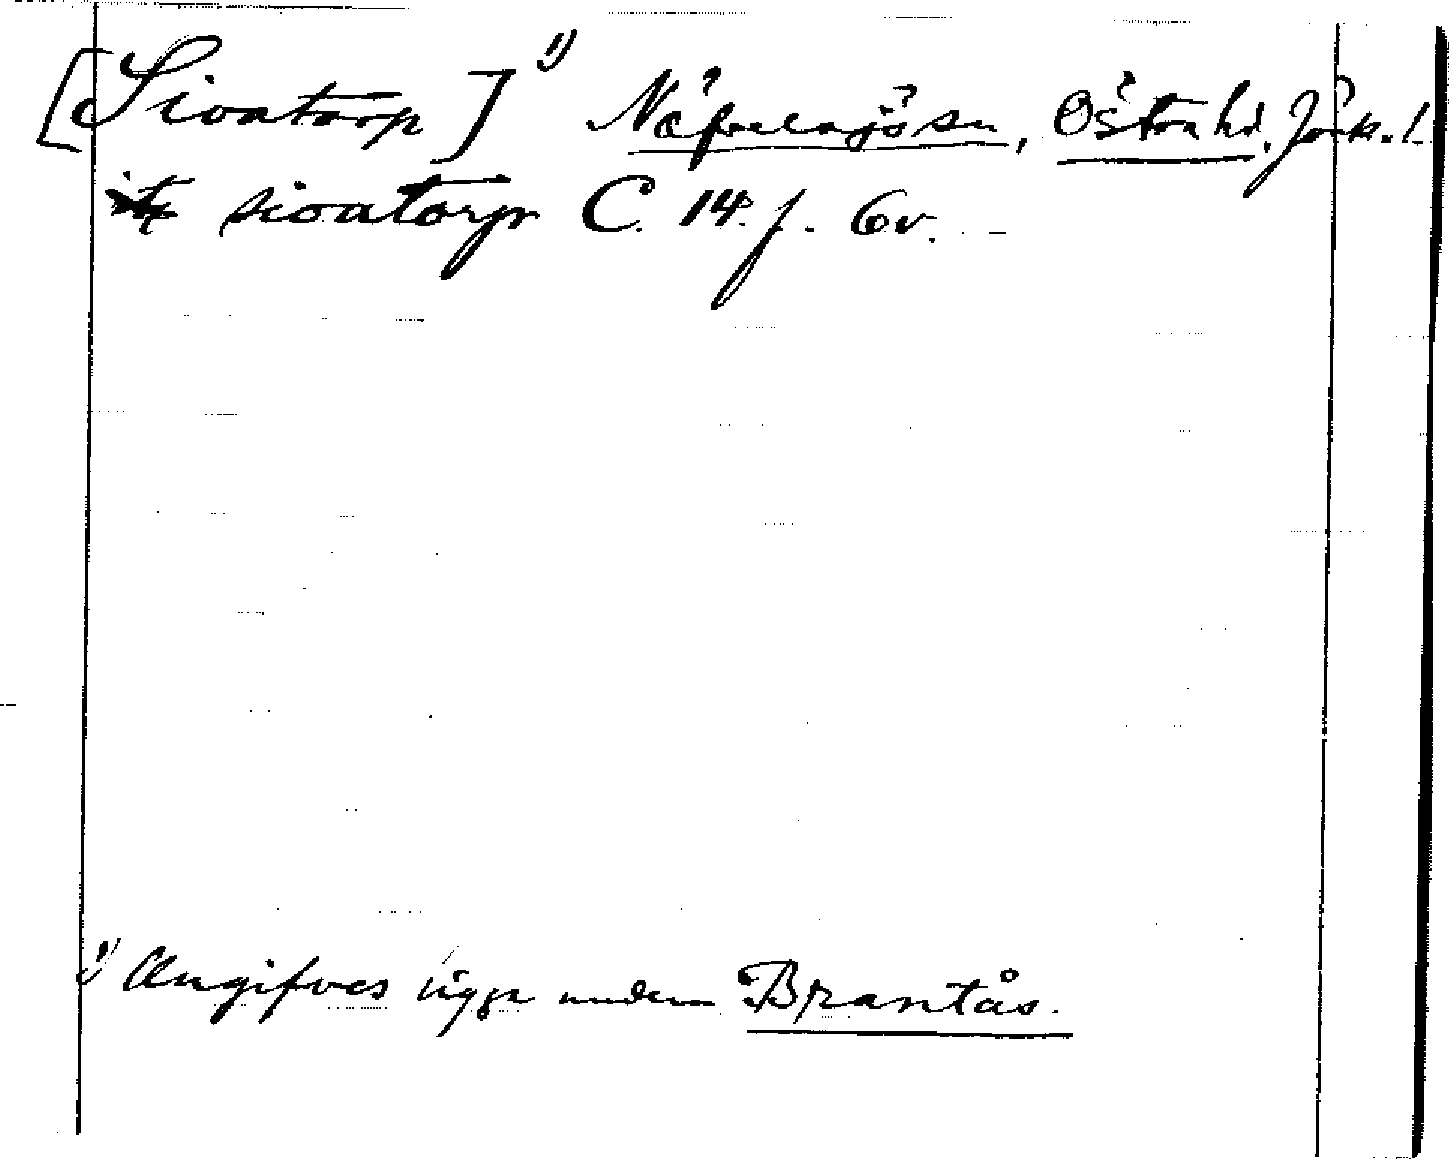 [Sioatorp] 1) Näfvelsjö sn, Östra hd. Jönk. l.
sioatorp C. 14. f. 6v.
1) Angifves ligga under Brantås.